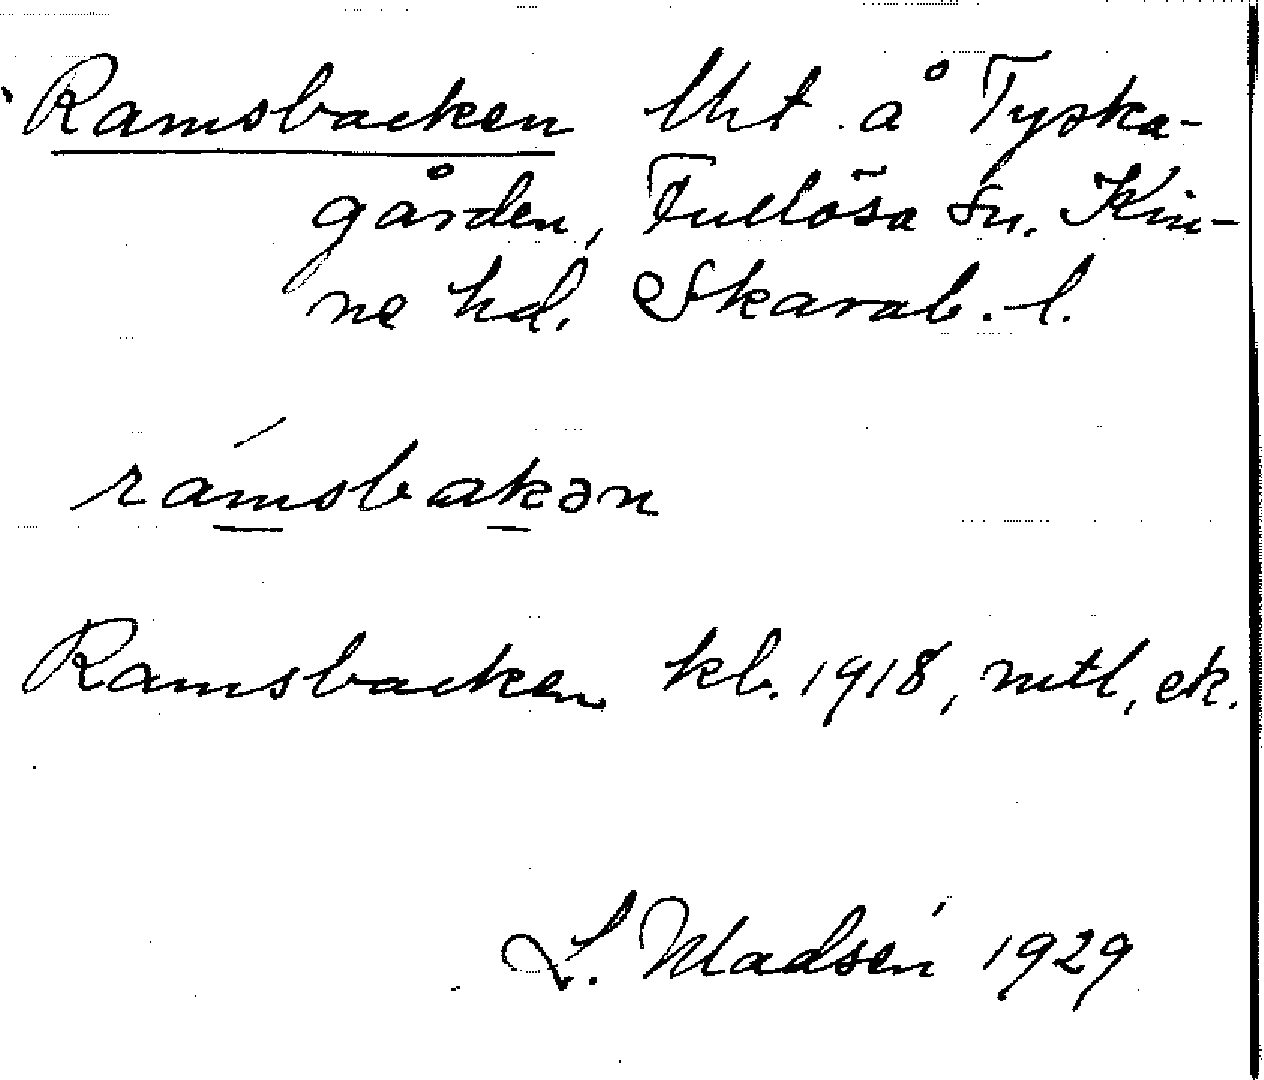 Ramsbacken lht å Tyska-
gården, Fullösa sn. Kin-
ne hd. Skarab. l.
ramsbakən
Ramsbacken kb. 1918, mtl, ek.
L. Madsén 1929